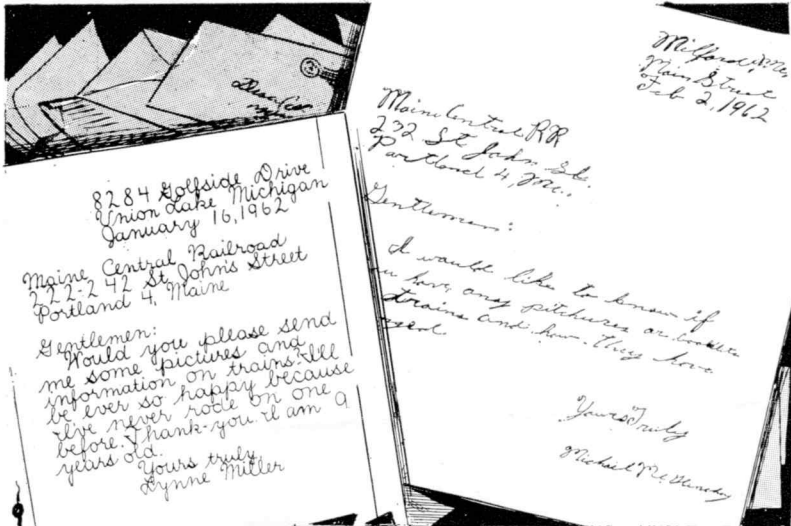 8284 Golfside Drive
Union Lake Michigan
January 16, 1962
Maine Central Railroad
222-242 St. John's Street
Portland 4, Maine
Gentlemen:
Would you please send
me some pictures and
information on trains. I'll
be ever so happy because
I've never rode on one
before. Thank-you. I am 9
years old.
Yours truly
Lynne Miller
Milford, Me,
Main Street
Feb 2, 1962
Maine Central RR
232 St John St.
Portland 4, Me.
Gentlemen:
I would like to know if
u have any pitchures or booklets
trains and how they have
Yours Truly
Michael